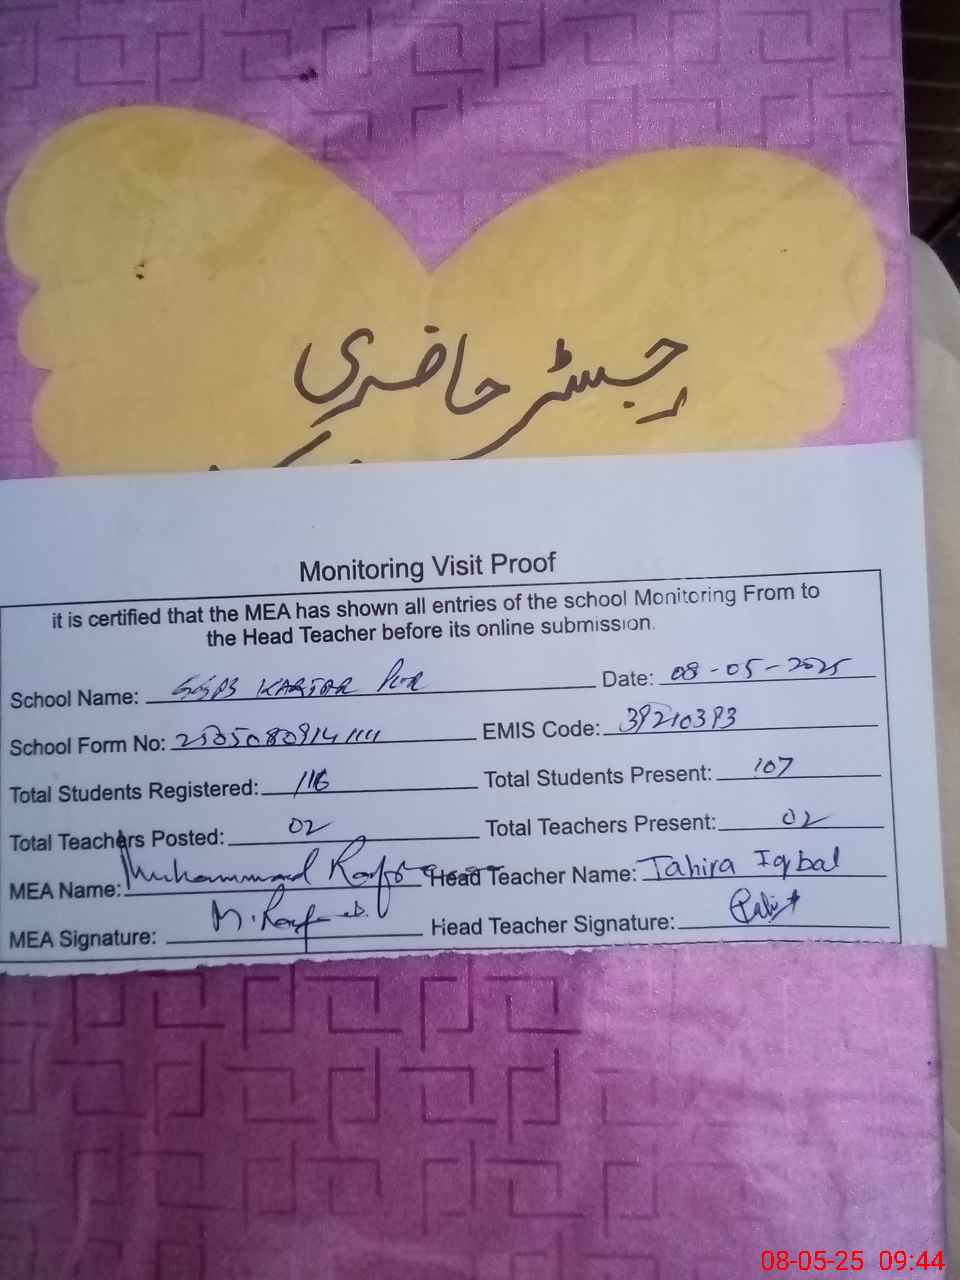 رجسٹر حاضری
Monitoring Visit Proof
it is certified that the MEA has shown all entries of the school Monitoring From to
the Head Teacher before its online submission.
School Name: KARTAR PUR Date: 08-05-2025
School Form No: EMIS Code: 39210393
Total Students Registered: 116 Total Students Present: 107
Total Teachers Posted: 02 Total Teachers Present: 02
MEA Name: Muhammad Head Teacher Name: Tahira Iqbal
MEA Signature: Head Teacher Signature:
08-05-25 09:44